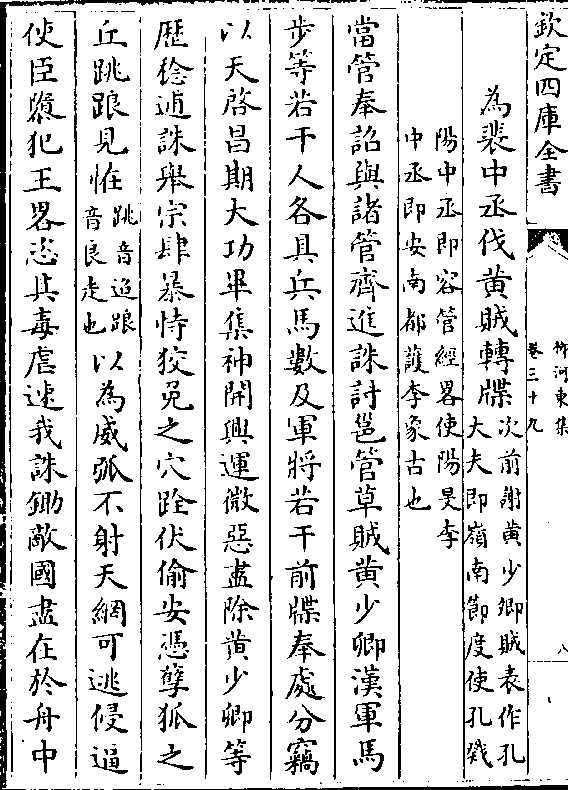 欽定四庫全書
柳河東集
卷三十九
八
為裴中丞伐黄賊轉牒次前謝黄少卿賊表作孔
大夫即嶺南節度使孔戣
陽中丞即容管經畧使陽旻李
中丞即安南都護李象古也
當管奉詔與諸管齊進誅討邕管草賊黄少卿漢軍馬
步等若干人各具兵馬數及軍將若干前牒奉處分竊
以天啓昌期大功畢集神開興運微惡盡除黄少卿等
歴稔逋誅舉宗肆暴恃狡兎之穴跧伏偷安憑孽狐之
丘跳踉見怪跳音迢踉
音良走也以為威弧不射天網可逃侵逼
使臣隳犯王畧恣其毒虐速我誅鋤敵國盡在於舟中